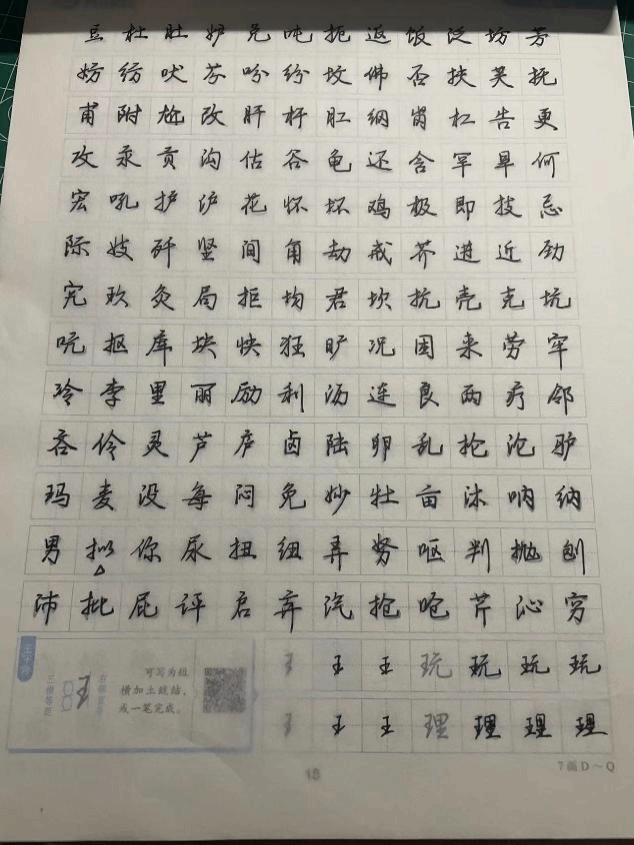 豆 杜 肚 妒 兑 吨 扼 返 饭 泛 坊 芳
妨 纺 吠 芬 吩 纷 坟 佛 否 扶 芙 抚
甫 附 尬 改 肝 杆 肛 纲 岗 杠 告 更
攻 汞 贡 沟 估 谷 龟 还 含 罕 旱 何
宏 吼 护 沪 花 怀 坏 鸡 极 即 技 忌
际 妓 歼 坚 间 角 劫 戒 芥 进 近 劲
究 玖 灸 局 拒 均 君 坎 抗 壳 克 坑
吭 抠 库 块 快 狂 旷 况 困 来 劳 牢
冷 李 里 丽 励 利 沥 连 良 两 疗 邻
吝 伶 灵 芦 庐 卤 陆 卵 乱 抡 沦 驴
玛 麦 没 每 闷 免 妙 牡 亩 沐 呐 纳
男 拟 你 尿 扭 纽 弄 努 呕 判 抛 刨
沛 批 屁 评 启 弃 汽 抢 呛 芹 沁 穷
王字旁
三横等距
可写为组
横加土竖结，
或一笔完成。
王 王 王 玩 玩 玩 玩
王 王 王 理 理 理 理
18
7画D～Q